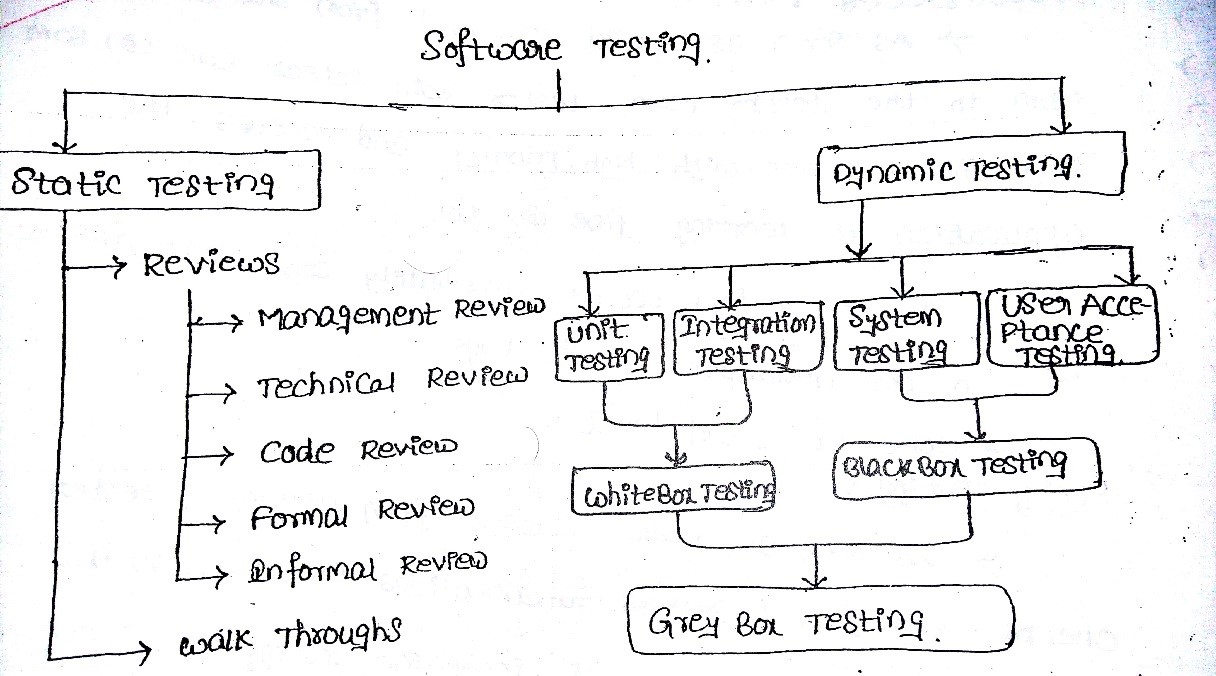 Software Testing.
Static Testing
Dynamic Testing.
Reviews
Management Review
Technical Review
Code Review
Formal Review
Informal Review
Walk Throughs
Unit
Testing
Integration
Testing
System
Testing
User Acce-
ptance
Testing.
White Box Testing
Black Box Testing
Grey Box Testing.